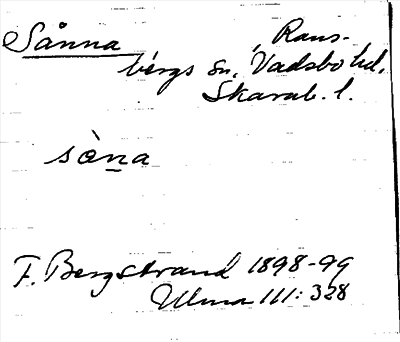 Sånna Rans-
bergs sn, Vadsbo hd,
Skarab. l.
sòna
F. Bergstrand 1898-99
Ulma 111:328